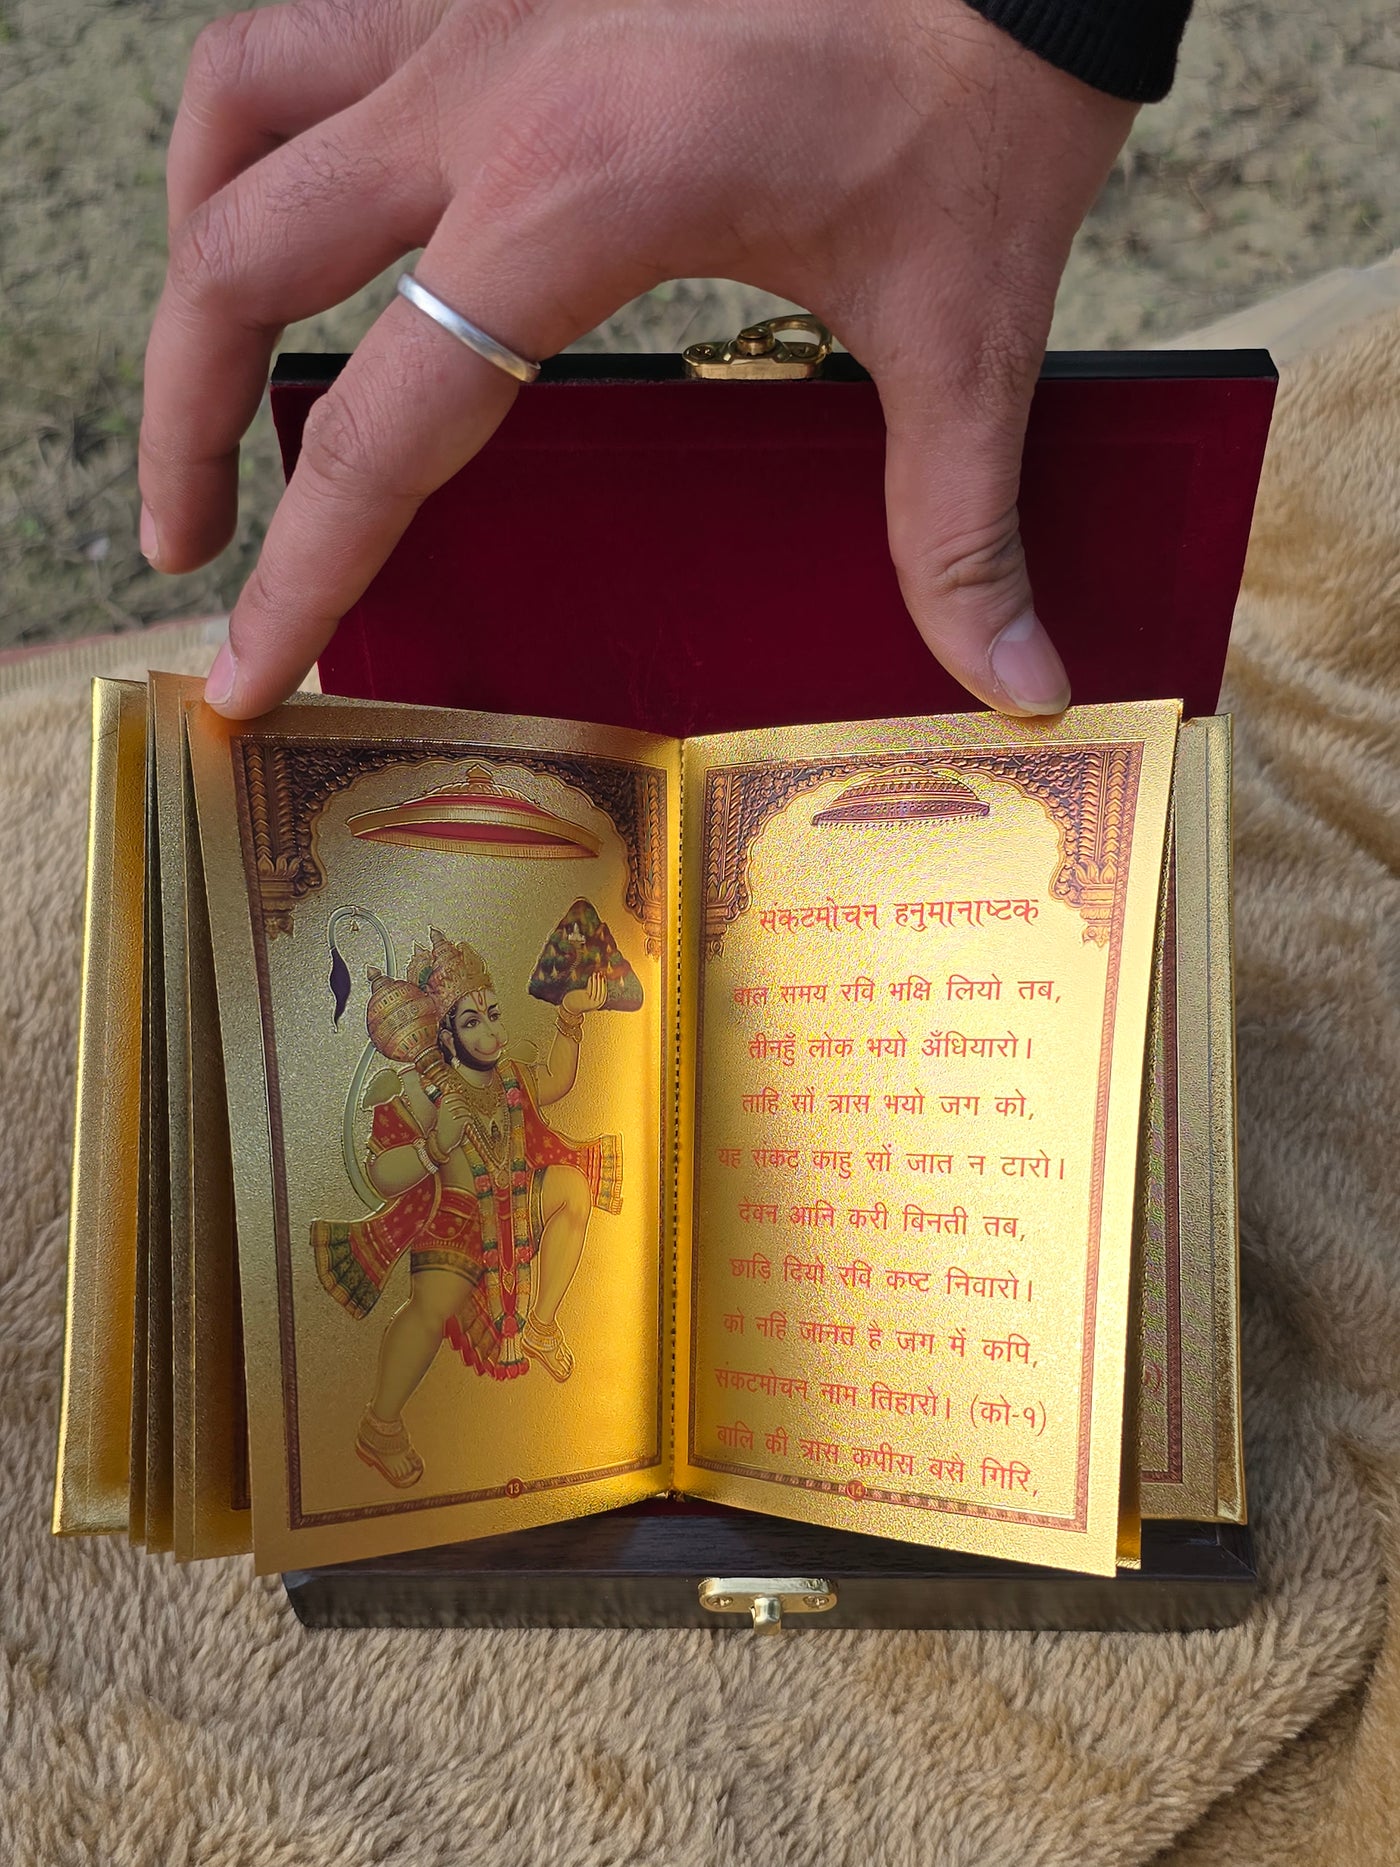 संकटमोचन हनुमानाष्टक
बाल समय रवि भक्षि लियो तब,
तीनहुँ लोक भयो अँधियारो।
ताहि सों त्रास भयो जग को,
यह संकट काहु सों जात न टारो।
देवन आनि करी बिनती तब,
छाडि दियो रवि कष्ट निवारो।
को नहिं जानत है जग में कपि,
संकटमोचन नाम तिहारो। (को-१)
बालि की त्रास कपीस बसे गिरि,
13
14